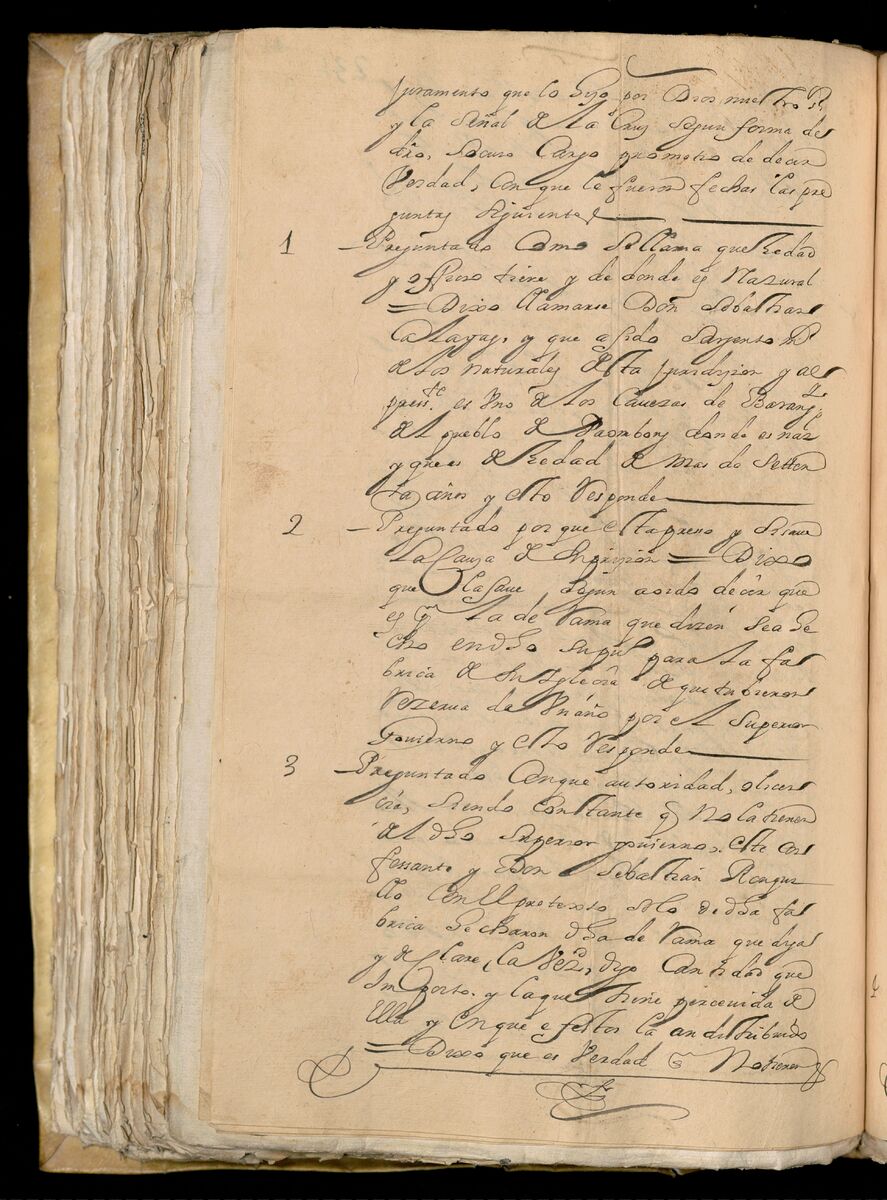 Juramento que lo hizo por Dios nuestro Sr
y la Señal de la Cruz segun forma de
dro, socuio Cargo prometio de decir
Verdad, Con que le fueron fechas las pre
guntas siguientes
1 Preguntado Como se llama que hedad
y offizio tiene y de donde es Natural
= Dixo llamarse Don Sebastian
y que a sido Sargento Mr
de los naturales desta Juridizion y al
presste es Uno de los Cavezas de Barangy
del pueblo de Paombon donde es nal
y que es de hedad de mas de setten
ta años y esto Responde
2 Preguntado por que esta presso y
La Causa de su prizion = Dixo
que la save segun a oido decir que
es pr la de rama que dizen sea he
cho en dho su pu para la fa
brica de su Iglecia de que tubieron
Rezerva de Un año por el Superior
Govierno y esto Responde
3 Preguntado Con que autoridad, o licen
cia, siendo Constante q No la tienen
del dho Superior govierno, este con
fessante y Don Sebastian Rongui
llo Con el pretexto solo de dha fa
brica hecharon dha de rama que diga
y declare, la Verd, dijo Cantidad que
Importo, y la que tiene percevida de
Ella y En que efettos la an distribuido
= Dixo que es Verdad q No tienen